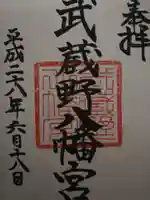 奉拝
武蔵野八幡宮
平成二八年六月十八日